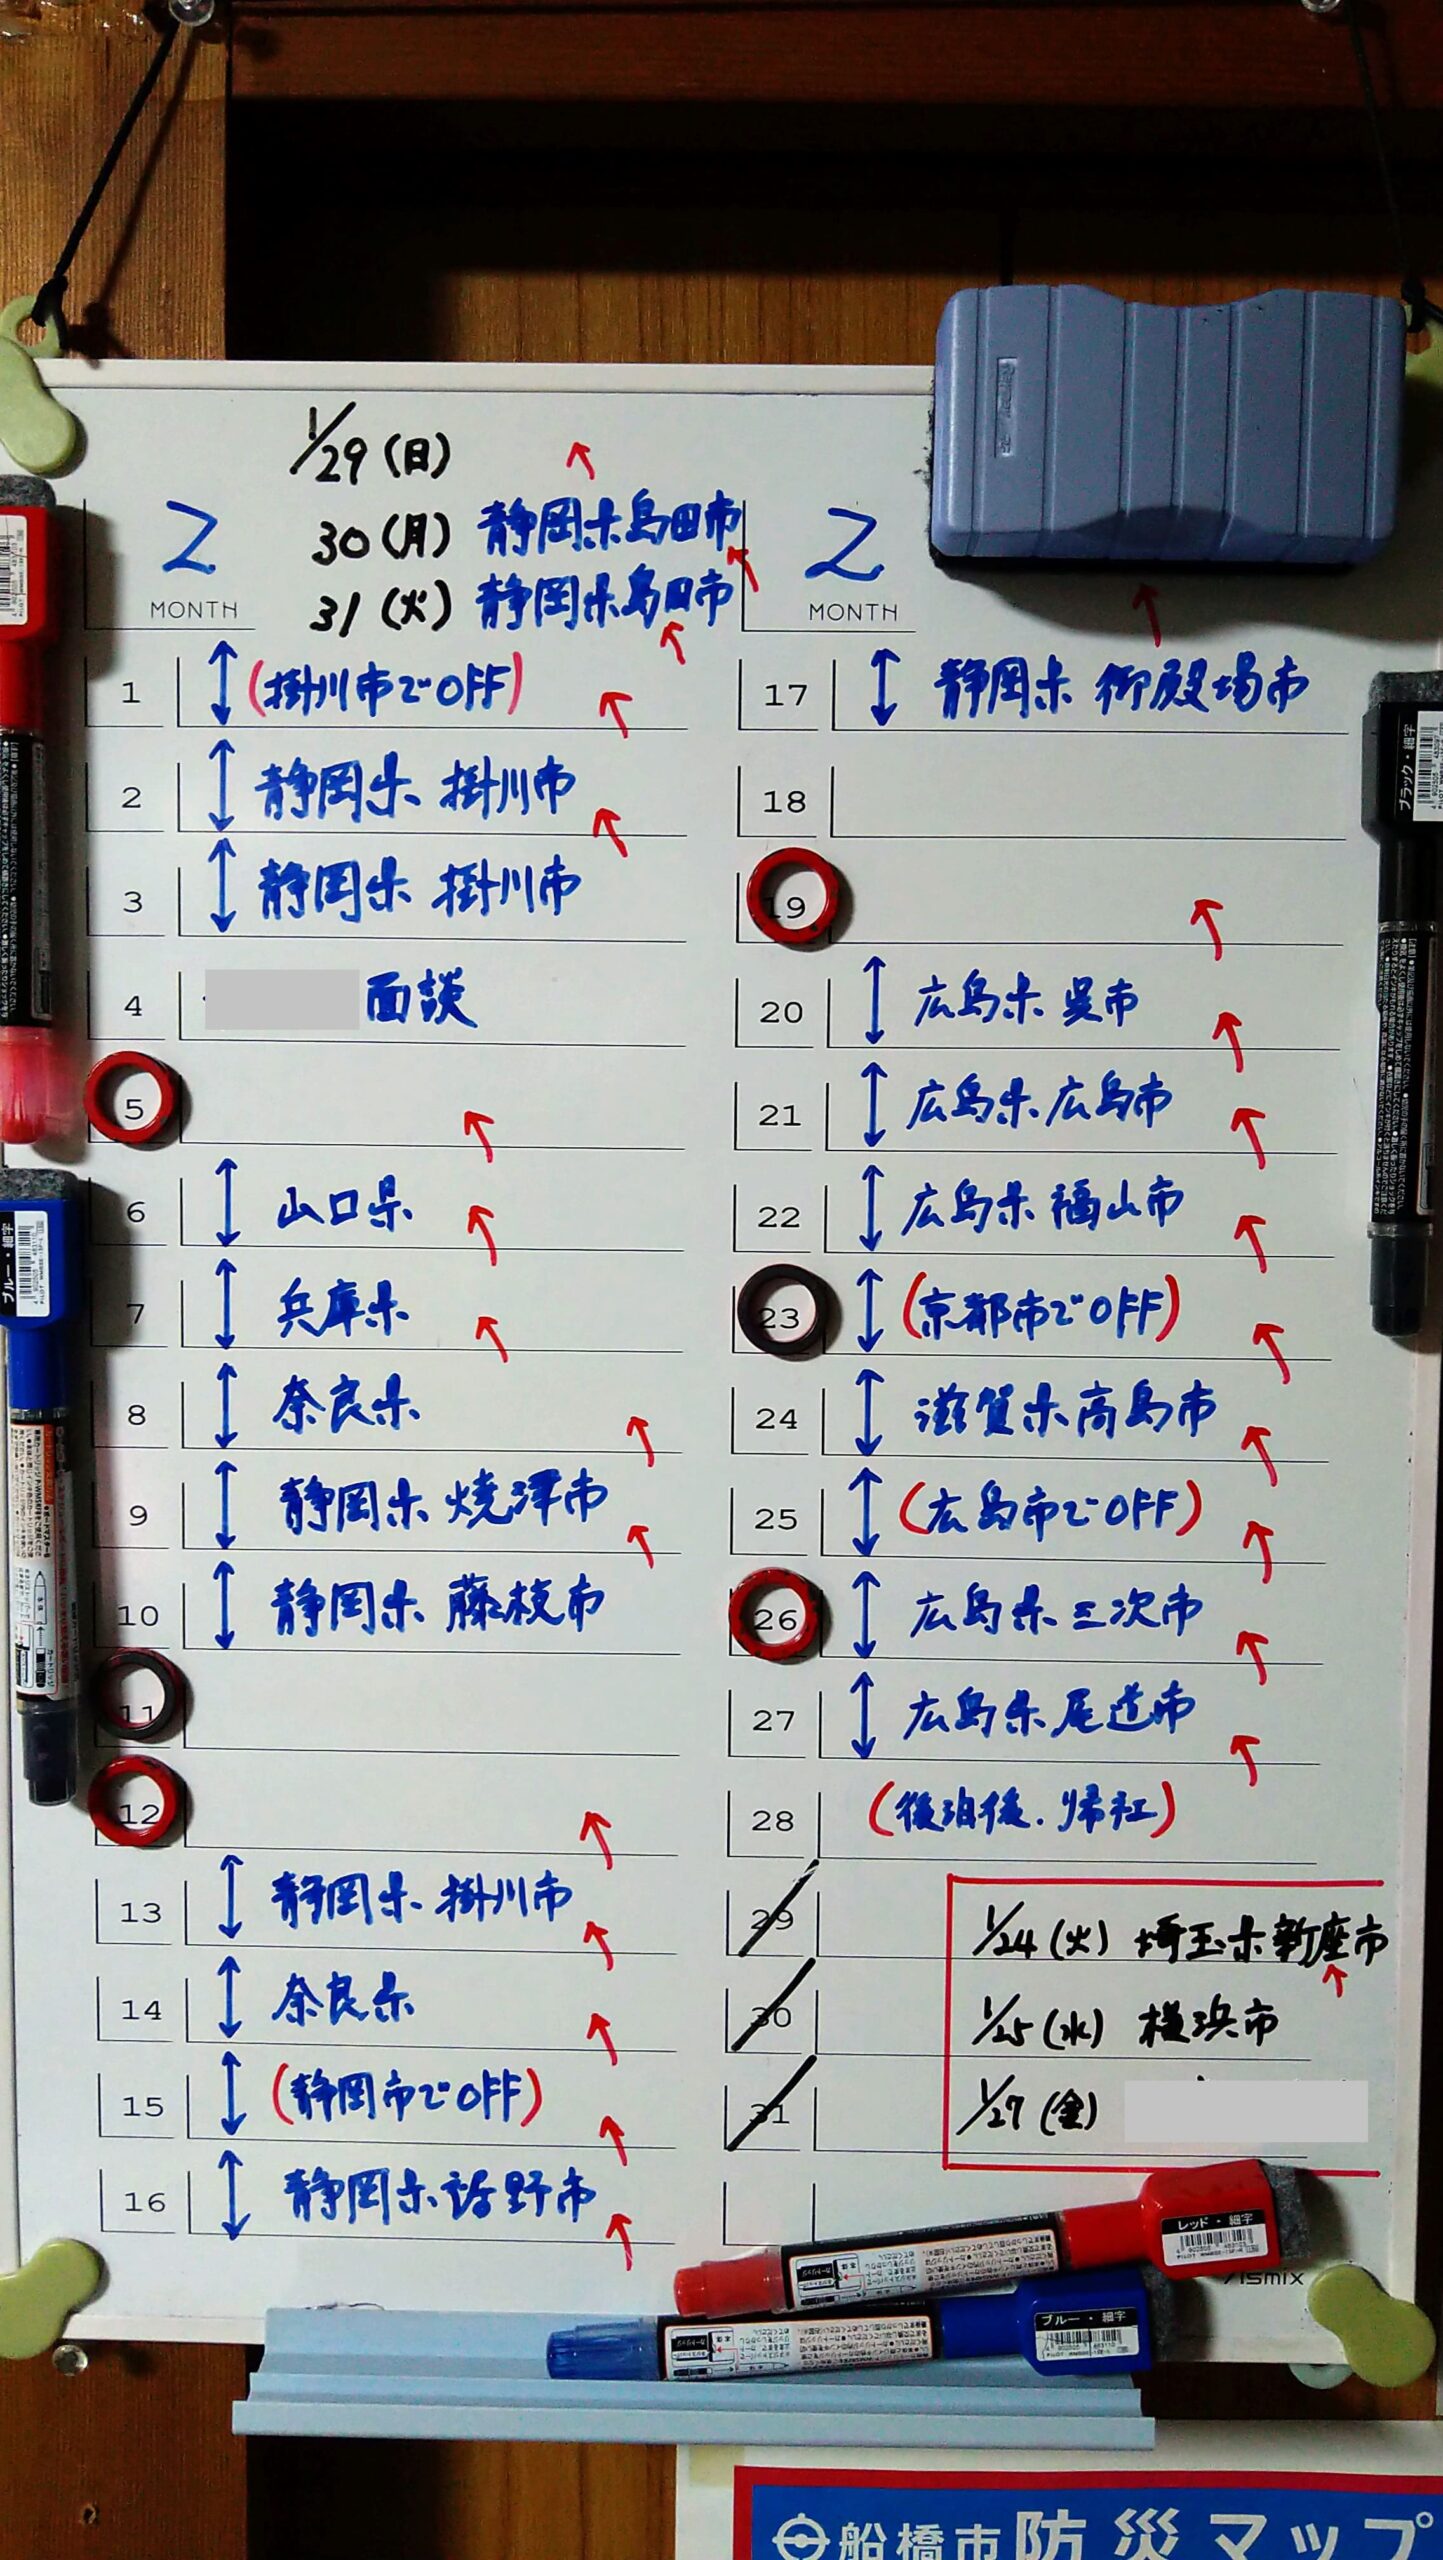 1/29(日)
30(月) 静岡県島田市
31(火) 静岡県島田市
2
MONTH
1 (掛川市でOFF)
2 静岡県 掛川市
3 静岡県 掛川市
4 面談
5
6 山口県
7 兵庫県
8 奈良県
9 静岡県 焼津市
10 静岡県 藤枝市
11
12
13 静岡県 掛川市
14 奈良県
15 (静岡市でOFF)
16 静岡県 裾野市
2
MONTH
17 静岡県 御殿場市
18
19
20 広島県 呉市
21 広島県 広島市
22 広島県 福山市
23 (京都市でOFF)
24 滋賀県 高島市
25 (広島市でOFF)
26 広島県 三次市
27 広島県 尾道市
28 (後泊後、帰社)
29
30
31
1/24(火) 埼玉県新座市
1/25(水) 横浜市
1/27(金)
レッド・細字
ブルー・細字
ブルー・細字
ブラック・細字
船橋市 防災マップ